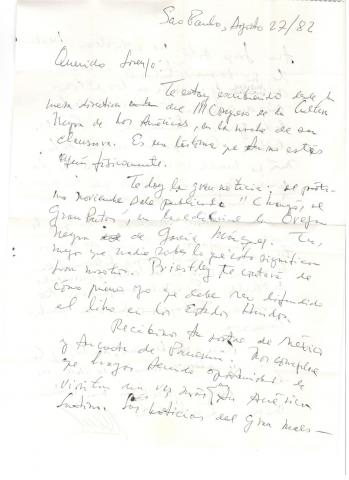 Sao Paulo, Agosto 27/82
Querido Lorenzo:
Te estoy escribiendo desde la
mesa directiva del III Congreso de la Cultura
Negra de Las Américas, en la noche de su
clausura. Es una lástima que tú no estés
aquí físicamente.
Te doy la gran noticia: el próxi-
mo noviembre sale publicado "Changó, el
Gran Putas", en la editorial la Oveja
Negra de García Márquez. Tú,
mejor que nadie sabes lo que esto significa
para nosotros. Priestley te contará de
cómo pienso yo que debe ser difundido
el libro en los Estados Unidos.
Recibimos tu postal de México
y de Panamá. Nos complace
que hayas tenido oportunidad de
visitar una vez más América
Latina. Las noticias del Gran Maes-